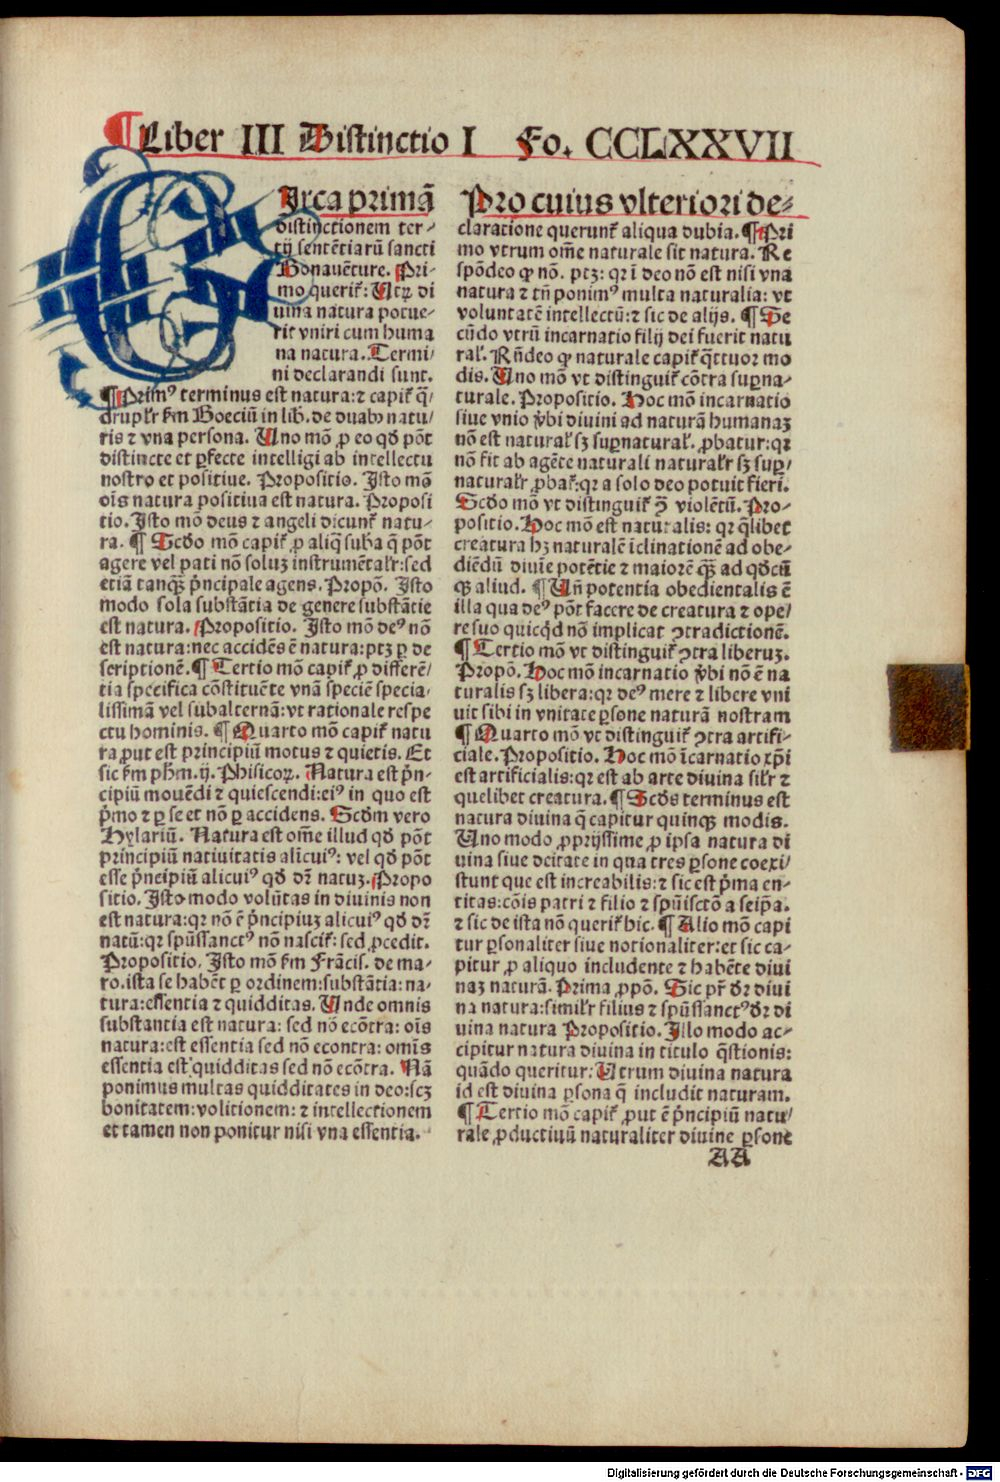 ¶ Liber III Distinctio I Fo. CCLXXVII
CIrca primā
distinctionem ter⸗
tij sentētiarū sancti
Bonauēture. Pri⸗
mo querit᷑: Utꝝ di
uina natura potue⸗
rit vniri cum huma
na natura. Termi⸗
ni declarandi sunt.
¶ Primꝰ terminus est natura: ⁊ capit᷑ q̄⸗
drupl'r ẜm Boeciū in lib. de duab natu⸗
ris ⁊ vna persona. Uno mō ꝓ eo qđ pōt
distincte et ꝑfecte intelligi ab intellectu
nostro et positiue. Propositio. Isto mō
oīs natura positiua est natura. Proposi
tio. Isto mō deus ⁊ angeli dicunt᷑ natu⸗
ra. ¶ Scđo mō capit᷑ ꝓ aliq̄ suba q̄ pōt
agere vel pati nō soluȝ instrumētal'r: sed
etiā tanqȝ̄ p̄ncipale agens. Propō. Isto
modo sola substātia de genere substātie
est natura. Propositio. Isto mō deꝰ nō
est natura: nec accidēs ē natura: ptȝ ꝑ de
scriptionē. ¶ Tertio mō capit᷑ ꝓ differē⸗
tia specifica cōstituēte vnā speciē specia⸗
lissimā vel subalternā: vt rationale respe
ctu hominis. ¶ Quarto mō capit᷑ natu
ra ꝓut est principiū motus ⁊ quietis. Et
sic ẜm ph̄m. ij. Phisicoꝝ. Natura est p̄n⸗
cipiū mouēdi ⁊ quiescendi: eiꝰ in quo est
p̄mo ⁊ ꝑ se et nō ꝑ accidens. Scđm vero
Hylariū. Natura est om̄e illud qđ pōt
principiū natiuitatis alicuiꝰ: vel qđ pōt
esse p̄ncipiū alicuiꝰ qđ dr̄ natuȝ. Propo
sitio. Isto modo volūtas in diuinis non
est natura: qꝛ nō ē p̄ncipiuȝ alicuiꝰ qđ dr̄
natū: qꝛ spūssanctꝰ nō nascit᷑: sed ꝓcedit.
Propositio. Isto mō ẜm Frācis. de ma⸗
ro. ista se habēt ꝑ ordinem: substātia: na⸗
tura: essentia ⁊ quidditas. Unde omnis
substantia est natura: sed nō ecōtra: oīs
natura: est essentia sed nō econtra: omīs
essentia est quidditas sed nō ecōtra. Nā
ponimus multas quidditates in deo: scȝ
bonitatem: volitionem: ⁊ intellectionem
et tamen non ponitur nisi vna essentia.
Pro cuius vlteriori de⸗
claratione querunt᷑ aliqua dubia. ¶ Pri
mo vtrum om̄e naturale sit natura. Re
spōdeo ꝙ nō. ptȝ: qꝛ ī deo nō est nisi vna
natura ⁊ tn̄ ponimꝰ multa naturalia: vt
voluntatē intellectū: ⁊ sic de alijs. ¶ Se
cūdo vtrū incarnatio filij dei fuerit natu
ral'. Rn̄deo ꝙ naturale capit᷑ q̄ttuor mo
dis. Uno mō vt distinguit᷑ cōtra suꝑna⸗
turale. Propositio. Hoc mō incarnatio
siue vnio v̄bi diuini ad naturā humanaȝ
nō est natural' sȝ suꝑnatural'. ꝓbatur: qꝛ
nō fit ab agēte naturali natural'r sȝ suꝑ⸗
natural'r ꝓbat᷑: qꝛ a solo deo potuit fieri.
Scđo mō vt distinguit᷑ ꝯ̄ violētū. Pro⸗
positio. Hoc mō est naturalis: qꝛ q̄libet
creatura hȝ naturalē īclinationē ad obe⸗
diēdū diuīe potētie ⁊ maiorē qȝ̄ ad qđcū
qȝ aliud. ¶ Un̄ potentia obedientalis ē
illa qua deꝰ pōt facere de creatura ⁊ ope⸗
re suo quicq̇d nō implicat ꝯtradictionē.
¶ Tertio mō vt distinguit᷑ ꝯtra liberuȝ.
Propō. Hoc mō incarnatio v̄bi nō ē na
turalis sȝ libera: qꝛ deꝰ mere ⁊ libere vni
uit sibi in vnitate ꝑsone naturā nostram
¶ Quarto mō vt distinguit᷑ ꝯtra artifi⸗
ciale. Propositio. Hoc mō īcarnatio xp̄i
est artificialis: qꝛ est ab arte diuina sil'r ⁊
quelibet creatura. ¶ Scđs terminus est
natura diuina q̄ capitur quinqȝ modis.
Uno modo ꝓprijssime ꝓ ipsa natura di
uina siue deitate in qua tres ꝑsone coexi⸗
stunt que est increabilis: ⁊ sic est p̄ma en⸗
titas: cōis patri ⁊ filio ⁊ spūiscto a seip̄a.
⁊ sic de ista nō querit᷑ hic. ¶ Alio mō capi
tur ꝑsonaliter siue notionaliter: et sic ca⸗
pitur ꝓ aliquo includente ⁊ habēte diui
naȝ naturā. Prima ꝓpō. Sic pr̄ dr̄ diui
na natura: simil'r filius ⁊ spūssanctꝰ dr̄ di
uina natura Propositio. Illo modo ac⸗
cipitur natura diuina in titulo q̄stionis:
quādo queritur: Utrum diuina natura
id est diuina ꝑsona q̄ includit naturam.
¶ Tertio mō capit᷑ ꝓut ē p̄ncipiū natu⸗
rale ꝓductiuū naturaliter diuine ꝑsone
AA
Digitalisierung gefördert durch die Deutsche Forschungsgemeinschaft - DFG